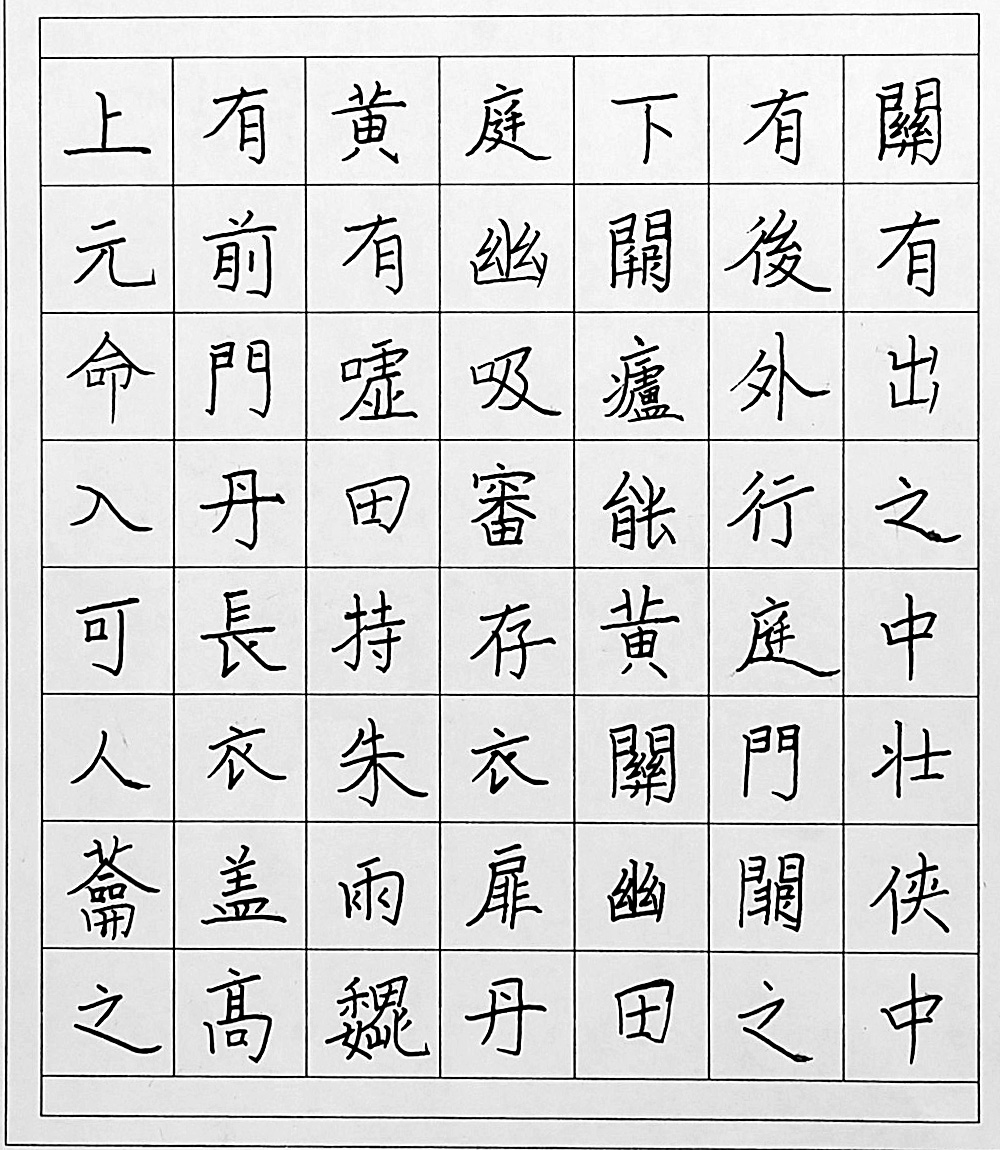 上有黄庭下有關
元前有幽闕後有
命門嘘吸廬外出
入丹田審能行之
可長持存黄庭中
人衣朱衣關門壮
蘥盖兩扉幽闕侠
之髙巍丹田之中